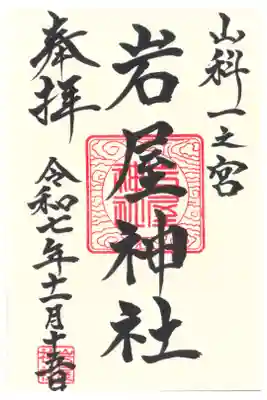 山科一之宮
岩屋神社
岩屋
神社
奉拝
令和七年十一月十日